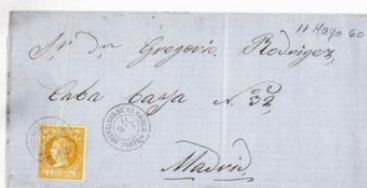 11 Mayo 60
Sr Dn Gregorio Rodrigez
Caba baja N. 32,
Madrid